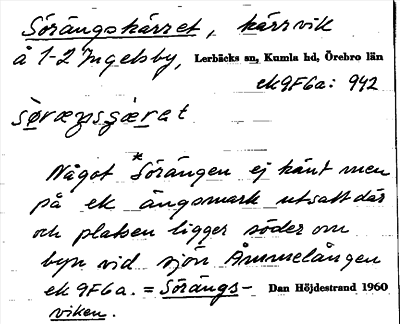 Sörängskärret, kärrvik
å 1-2 Ingelsby, Lerbäcks sn, Kumla hd, Örebro län
ek9F6a: 942
Något *Sörängen ej känt men
på ek ängsmark utsatt där
och platsen ligger söder om
byn vid sjön Åmmelången
ek 9F6a. = Sörängs- Dan Höjdestrand 1960
viken.